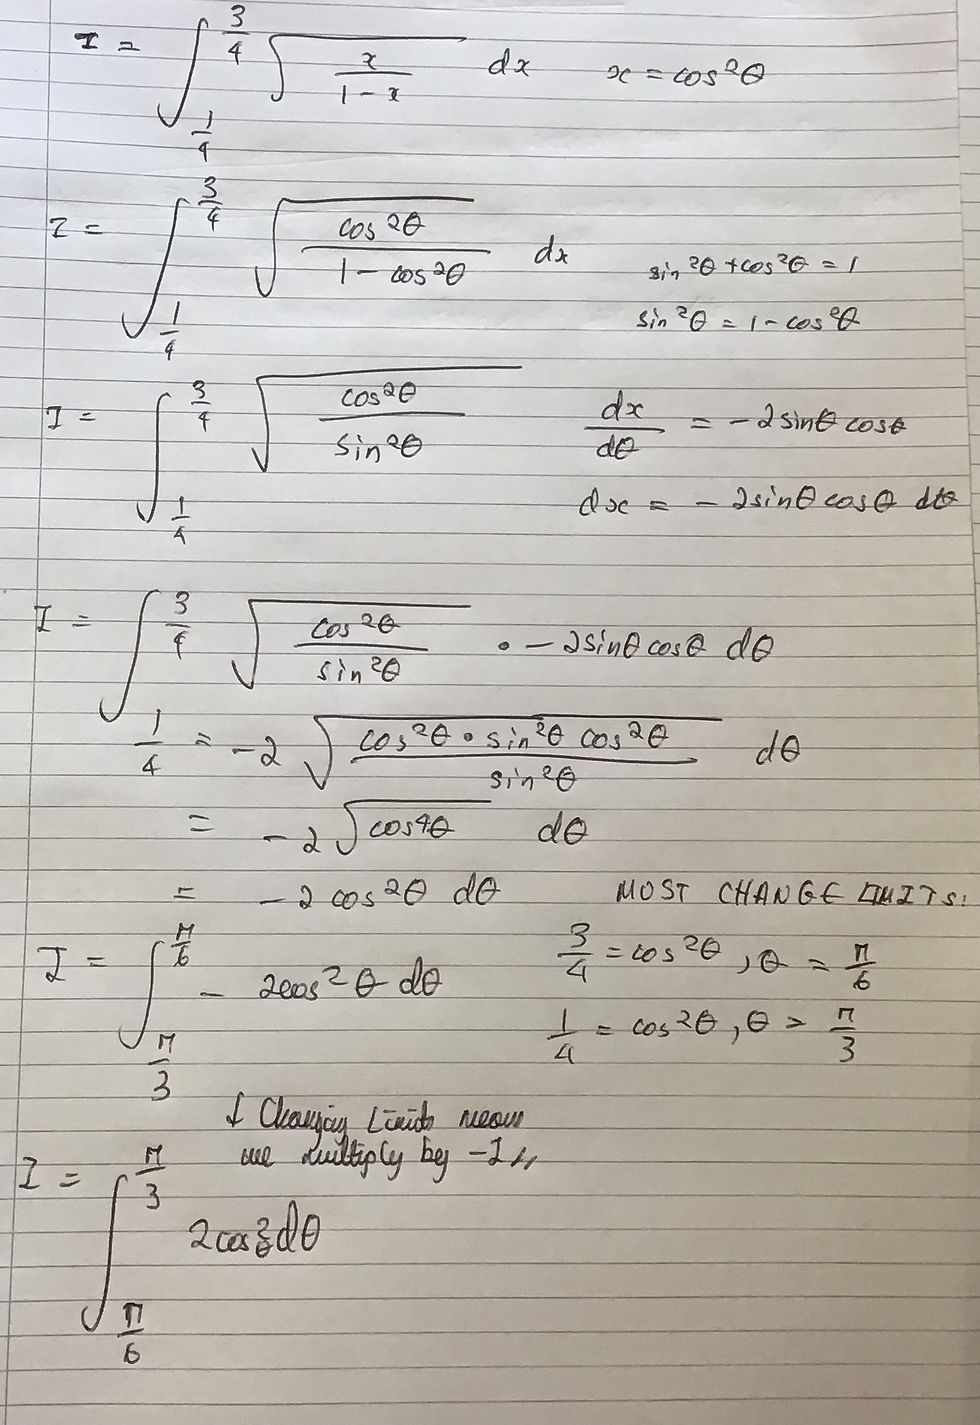 I = ∫_{1/4}^{3/4} √(x/(1-x)) dx x = cos²θ
I = ∫_{1/4}^{3/4} √(cos²θ/(1-cos²θ)) dx sin²θ + cos²θ = 1
sin²θ = 1 - cos²θ
I = ∫_{1/4}^{3/4} √(cos²θ/sin²θ) dx/dθ = -2sinθ cosθ
dx = -2sinθ cosθ dθ
I = ∫_{1/4}^{3/4} √(cos²θ/sin²θ) • -2sinθ cosθ dθ
= -2 √(cos²θ • sin²θ cos²θ/sin²θ) dθ
= -2 √(cos⁴θ) dθ
= -2 cos²θ dθ MOST CHANGE LIMITS:
I = ∫_{π/3}^{π/6} - 2cos²θ dθ 3/4 = cos²θ, θ = π/6
1/4 = cos²θ, θ = π/3
↓ Changing Limits means
we multiply by -1 //
I = ∫_{π/6}^{π/3} 2cos²θ dθ